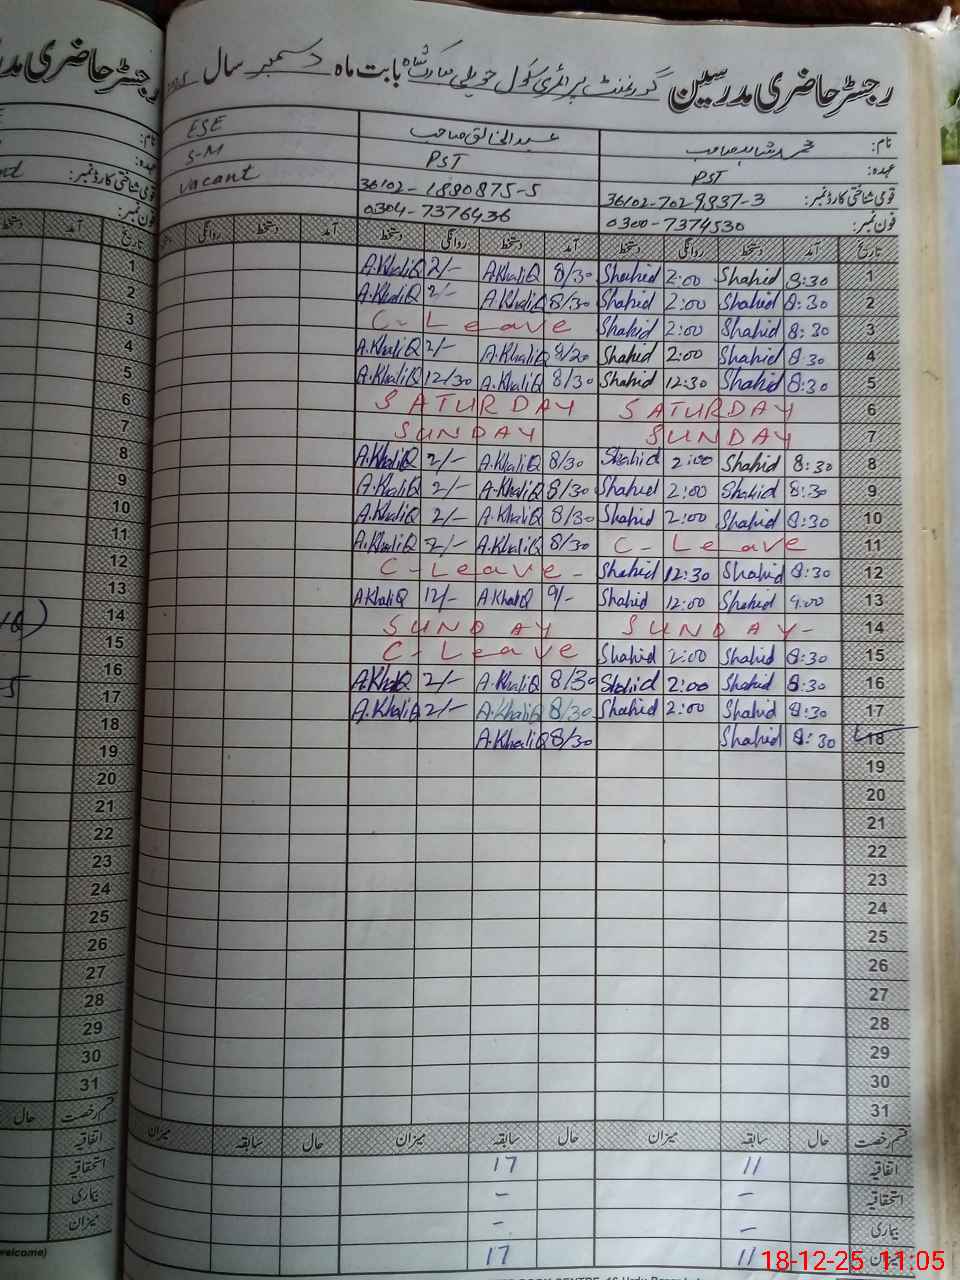 رجسٹر حاضری مدرسین گورنمنٹ پرائمری سکول حویلی مبارک شاہ بابت ماہ دسمبر سال
نام: محمد شاہد صاحب عبدالخالق صاحب ESE
عہدہ: PST PST S-M
قومی شناختی کارڈ نمبر: 36102-7029937-3 36102-1890875-5 Vacant
فون نمبر: 0300-7374530 0304-7376436
تاریخ آمد دستخط روانگی دستخط آمد دستخط روانگی دستخط آمد دستخط روانگی تاریخ
1 8:30 Shahid 2:00 Shahid 8/30 A.KhaliQ 2/- A.KhaliQ 1
2 8:30 Shahid 2:00 Shahid 8/30 A.KhaliQ 2/- A.KhaliQ 2
3 8:30 Shahid 2:00 Shahid C-Leave 3
4 8:30 Shahid 2:00 Shahid 8/30 A.KhaliQ 2/- A.KhaliQ 4
5 8:30 Shahid 12:30 Shahid 8/30 A.KhaliQ 12/30 A.KhaliQ 5
6 SATURDAY SATURDAY 6
7 SUNDAY SUNDAY 7
8 8:30 Shahid 2:00 Shahid 8/30 A.KhaliQ 2/- A.KhaliQ 8
9 8:30 Shahid 2:00 Shahid 8/30 A.KhaliQ 2/- A.KhaliQ 9
10 8:30 Shahid 2:00 Shahid 8/30 A.KhaliQ 2/- A.KhaliQ 10
11 C-Leave 8/30 A.KhaliQ 2/- A.KhaliQ 11
12 8:30 Shahid 12:30 Shahid C-Leave- 12
13 9:00 Shahid 12:00 Shahid 9/- A.KhaliQ 12/- A.KhaliQ 13
14 SUNDAY- SUNDAY 14
15 8:30 Shahid 2:00 Shahid C-Leave 15
16 8:30 Shahid 2:00 Shahid 8/30 A.KhaliQ 2/- A.KhaliQ 16
17 8:30 Shahid 2:00 Shahid 8/30 A.KhaliQ 2/- A.KhaliQ 17
18 8:30 Shahid 8/30 A.KhaliQ 18
19 19
20 20
21 21
22 22
23 23
24 24
25 25
26 26
27 27
28 28
29 29
30 30
31 31
قسم رخصت حال سابقہ میزان حال سابقہ میزان حال سابقہ میزان قسم رخصت حال
اتفاقیہ 11 17 اتفاقیہ
استحقاقیہ - - استحقاقیہ
بیماری - - بیماری
میزان 11 17 میزان
welcome)
18-12-25 11:05